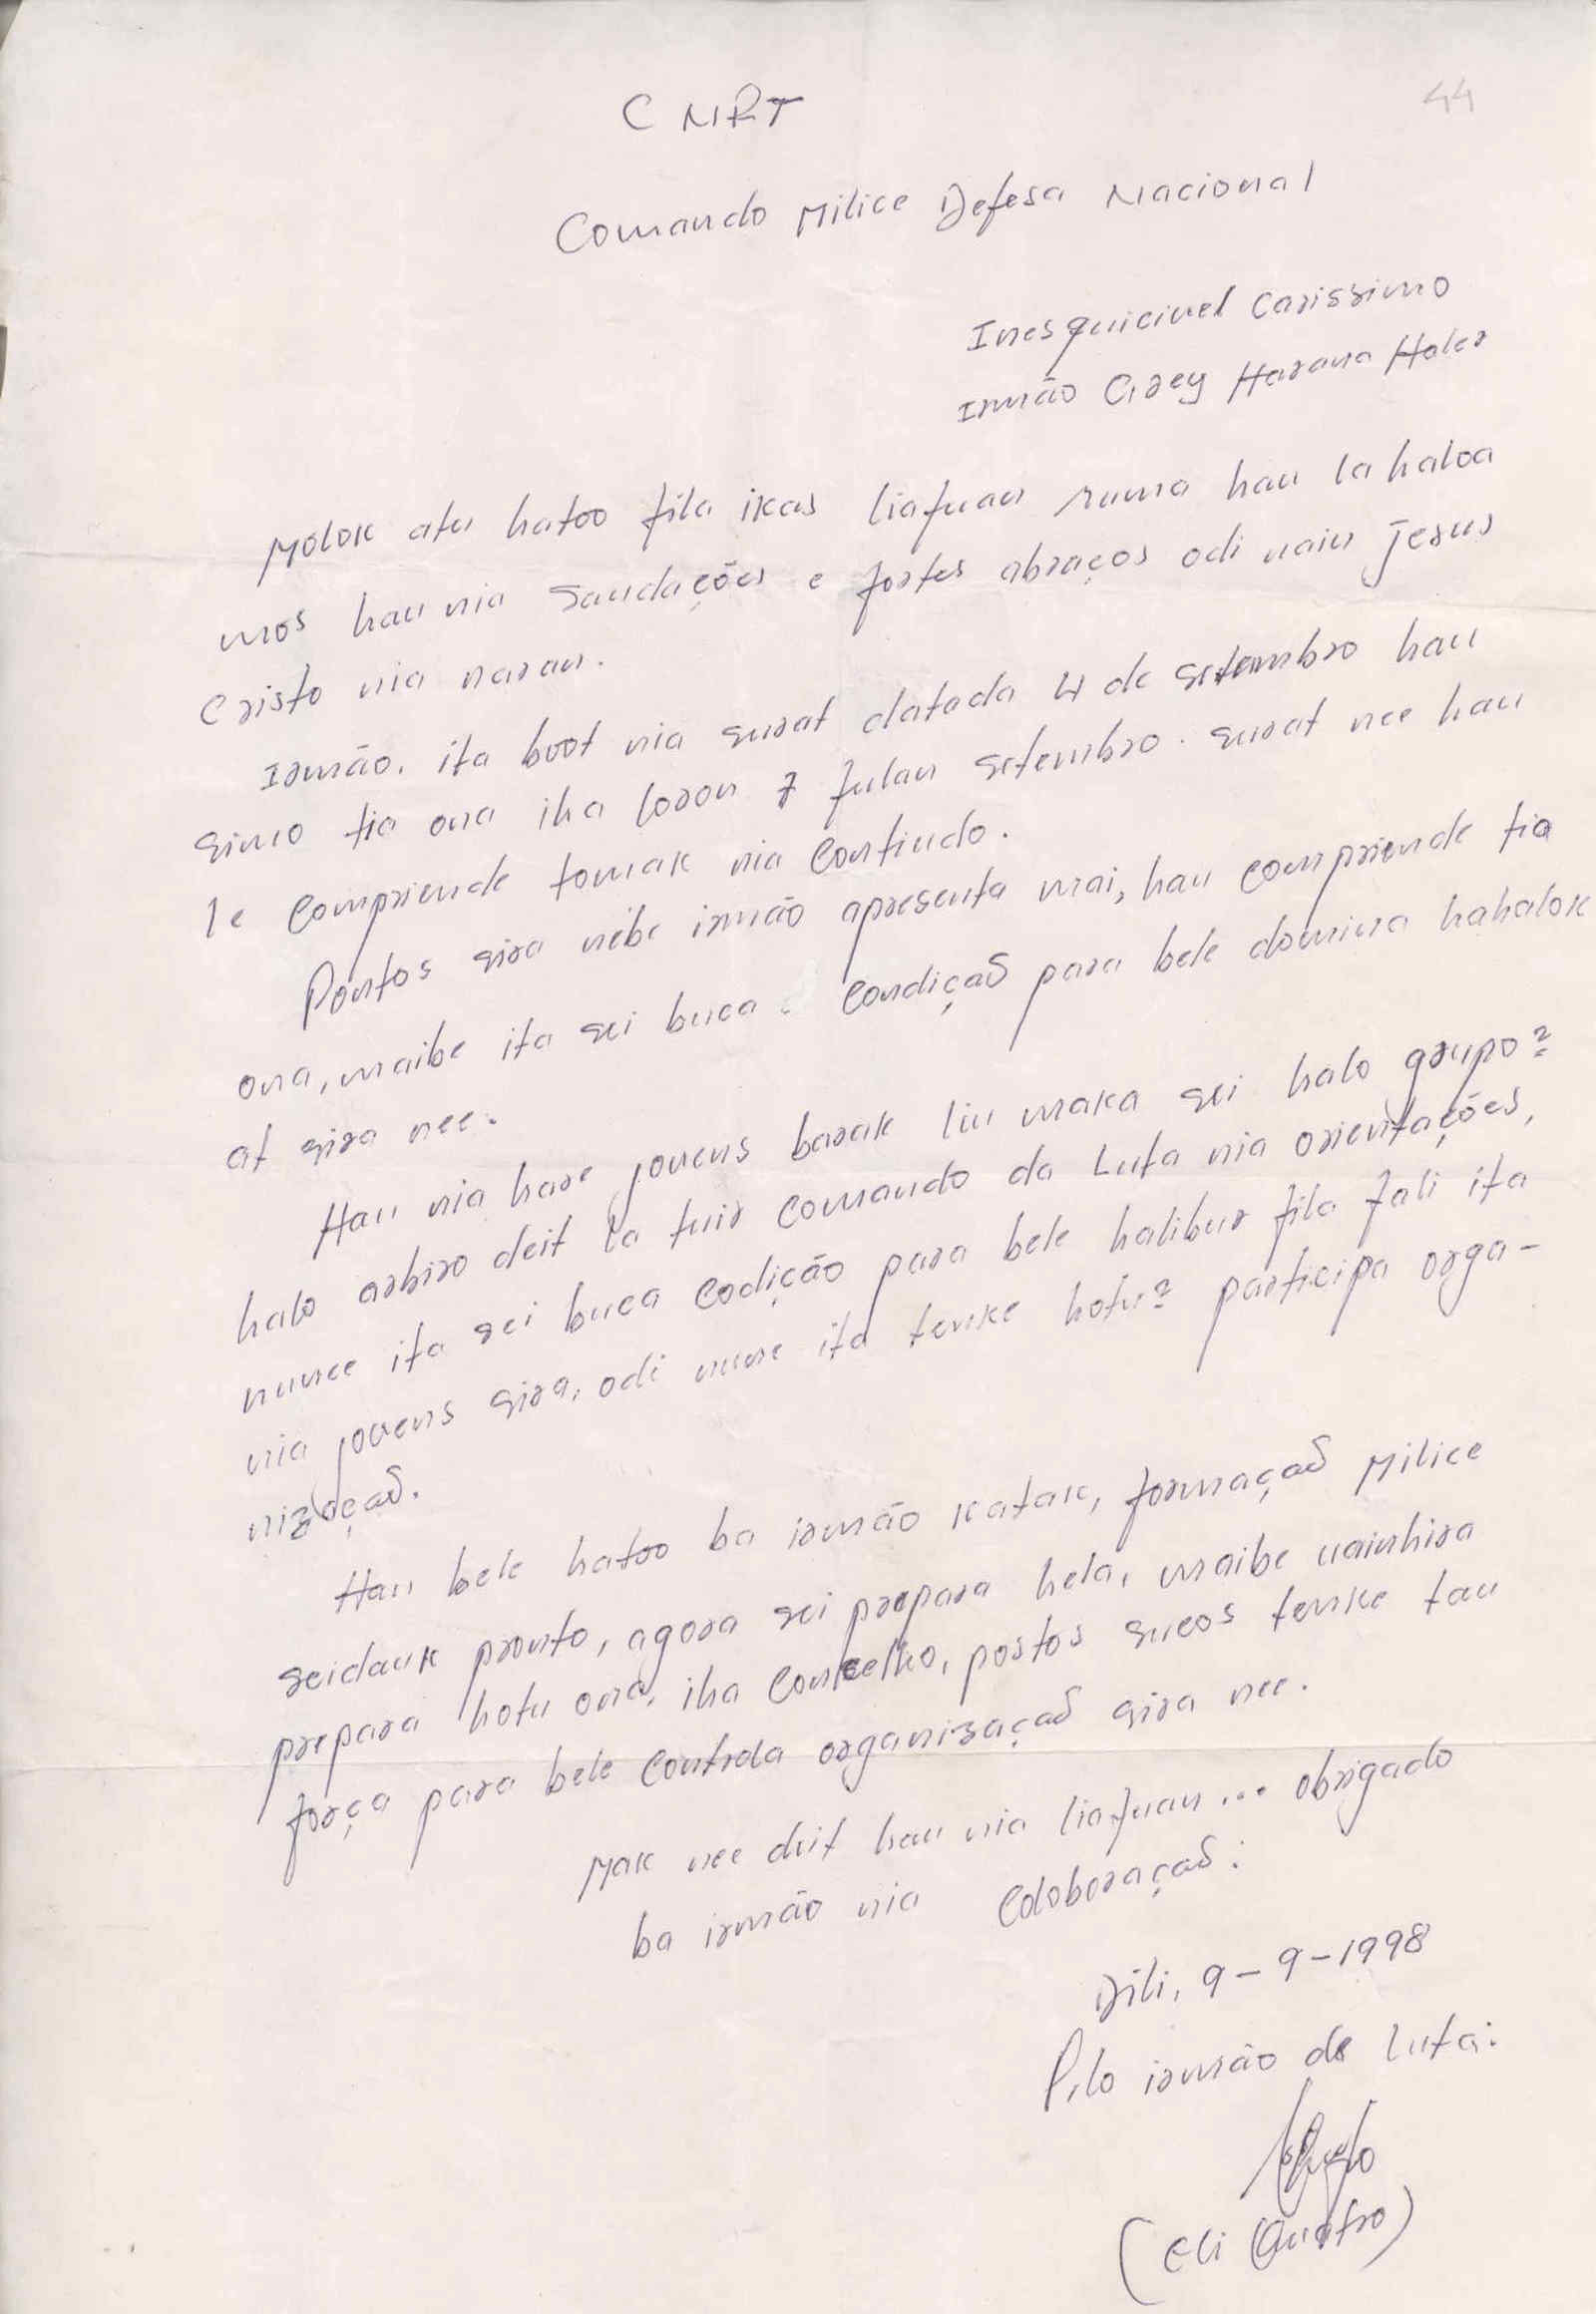 44
C NRT
Comando Milice Defesa Nacional
Inesquicivel Carissimo
Irmão Harana
Molok atu hatoo fila ikas liafuan ruma hau la haloa
mos hau nia Saudações e fortes abraços odi nain Jesus
Cristo nia naran.
Irmão. ita boot nia surat datada 4 de Setembro hau
simo tia ona iha loron 7 fulan Setembro. surat nee hau
le Compriende tomak nia Contiudo.
Pontos sira nebe irmão apresenta mai, hau compriende tia
ona, maibe ita sei buca Condição para bele domina hahalok
at sira nee.
Hau nia hare jovens barak liu maka sei halo grupo²
halo arbiro deit la tuir Comando da Luta nia orientações,
nunee ita sei buca Codição para bele halibur fila fali ita
nia jovens sira, odi nune ita tenke hotu² participa orga-
nização.
Hau bele hatoo ba irmão Katak, formação Milice
seidauk pronto, agora sei prepara hela, maibe uainhira
prepara hotu ona, iha Concelho, postos sucos tenke tau
força para bele Controla organização sira nee.
Mak nee deit hau nia liafuan... obrigado
ba irmão nia Coloboração:
Dili, 9-9-1998
Pelo irmão de Luta:
(Eli Quatro)